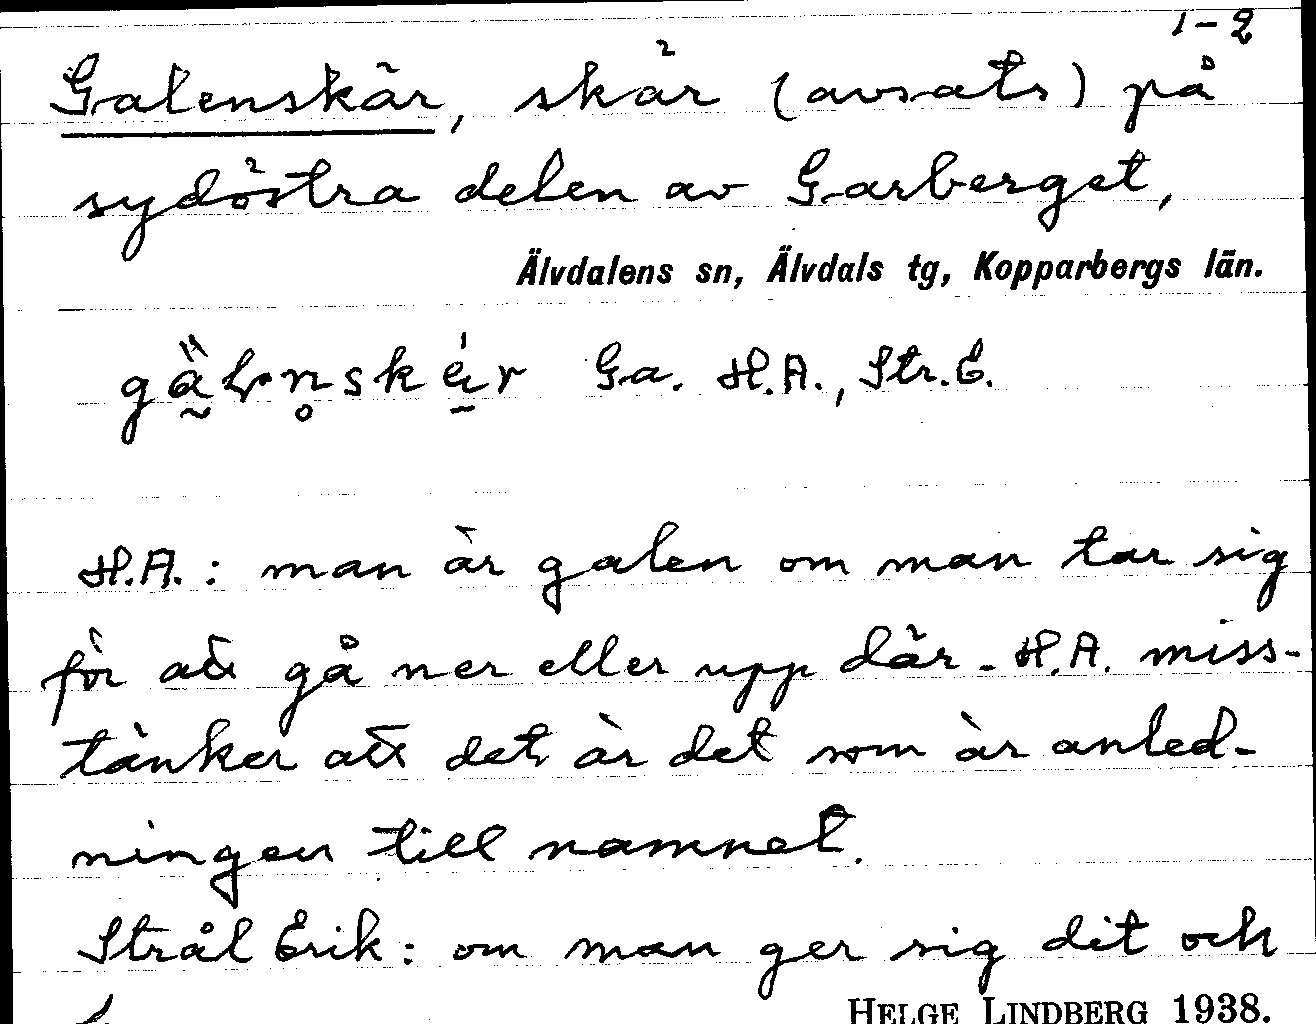 1-2
Galenskär, skär (avsats) på
sydöstra delen av Garberget,
Älvdalens sn, Älvdals tg, Kopparbergs län.
Ga. H.A., Str.E.
H.A.: man är galen om man tar sig
för att gå ner eller upp där - H.A. miss-
tänker att det är det som är anled-
ningen till namnet.
Strål Erik: om man ger sig dit och
HELGE LINDBERG 1938.